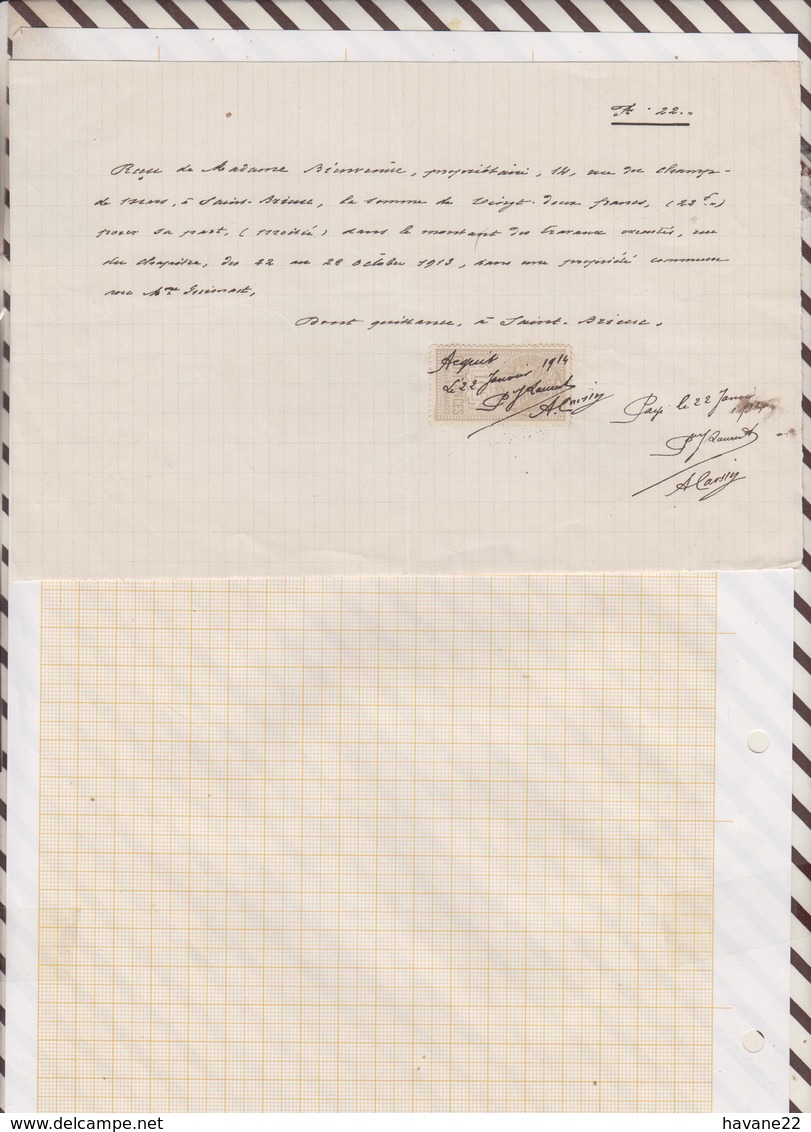 Fr. 22.„
Reçu de Madame Bienvenüe, propriétaire, 14, rue du Champ-
de Mars, à Saint-Brieuc, la somme de Vingt-deux francs, (22f.„)
pour sa part, (moitié) dans le montant des travaux executés, rue
du Chapitre, du 22 au 28 Octobre 1913, dans une propriété commune
avec Mme
Dont quittance, à Saint-Brieuc,
Acquit
Le 22 Janvier 1914
Pr J Laurent
A
Payé le 22 Janv
1914
Pr J Laurent
A
havane22